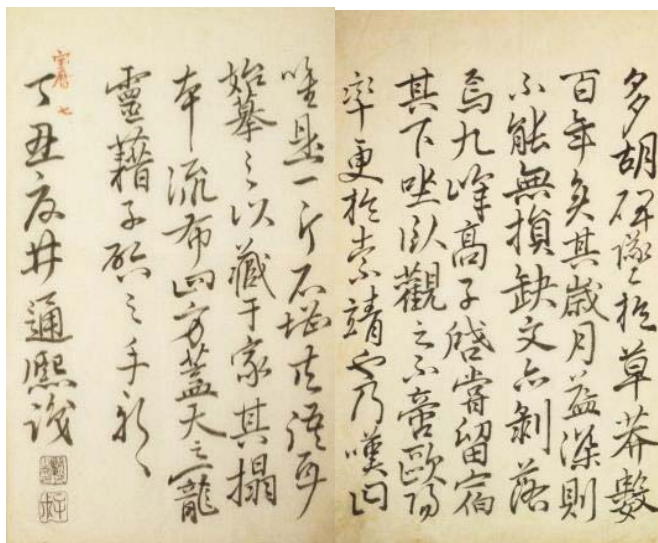 多胡碑於草莽數
百年矣其歳月益深則
不能無損缺文亦剝落
焉九峰高子啓嘗留宿
其下坐臥觀之不啻歐陽
率更於索靖也乃嘆曰
唯是一片石堪共語耳
始摹之以藏于家其搨
本流布四方蓋天之寵
靈藉子啓之手
宝暦七
丁丑夏井通熙識